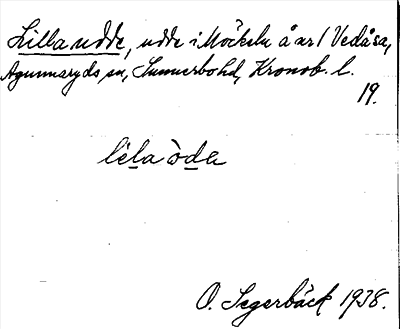 Lilla udde, udde i Möckeln å nr 1 Vedåsa,
Agunnaryds sn, Sunnerbohd, Kronob. l.
19.
lèla òde
O. Segerbäck 1938.